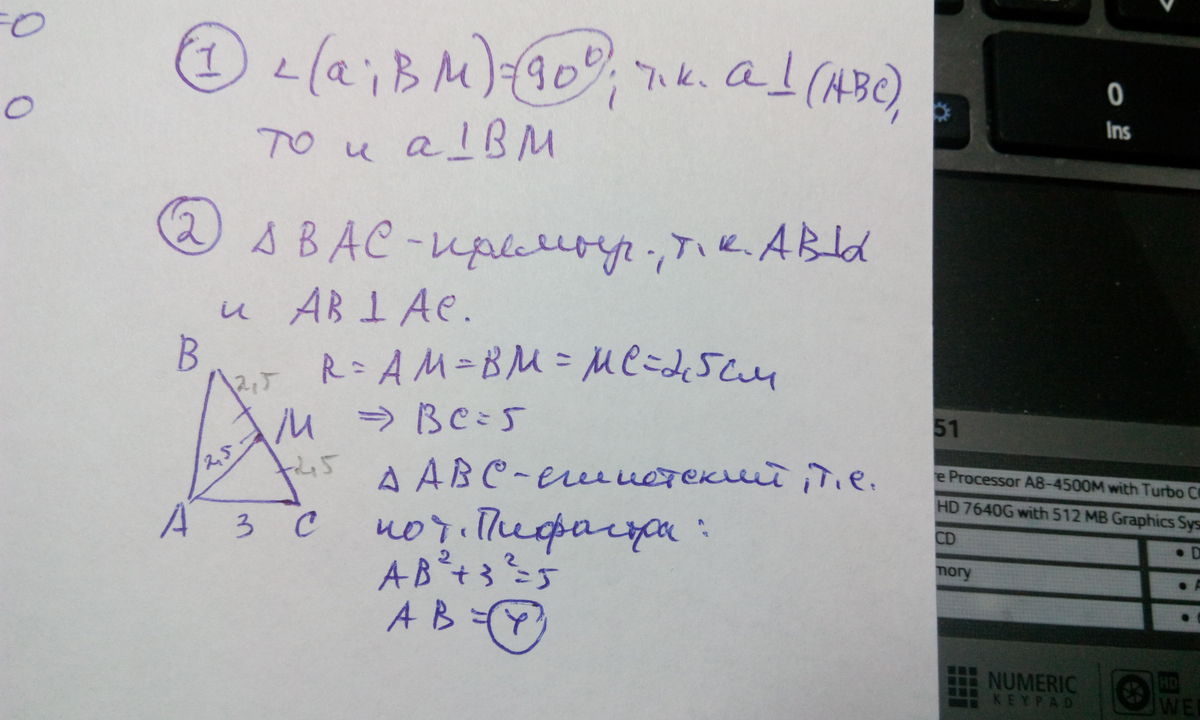 =0
0
① ∠(a; BM)=90°; т.к. a⊥(ABC),
то и a⊥BM
② △BAC - прямоуг., т.к. AB⊥α
и AB ⊥ AC.
B
R = AM = BM = MC = 2,5 см
2,5
M
⇒ BC = 5
2,5
2,5
△ ABC - египетский, т.е.
A 3 C
по т. Пифагора:
AB²+3²=5
AB = 4
0
Ins
51
re Processor A8-4500M with Turbo C
HD 7640G with 512 MB Graphics Sys
CD
mory
• D
NUMERIC
KEYPAD
HD
WE